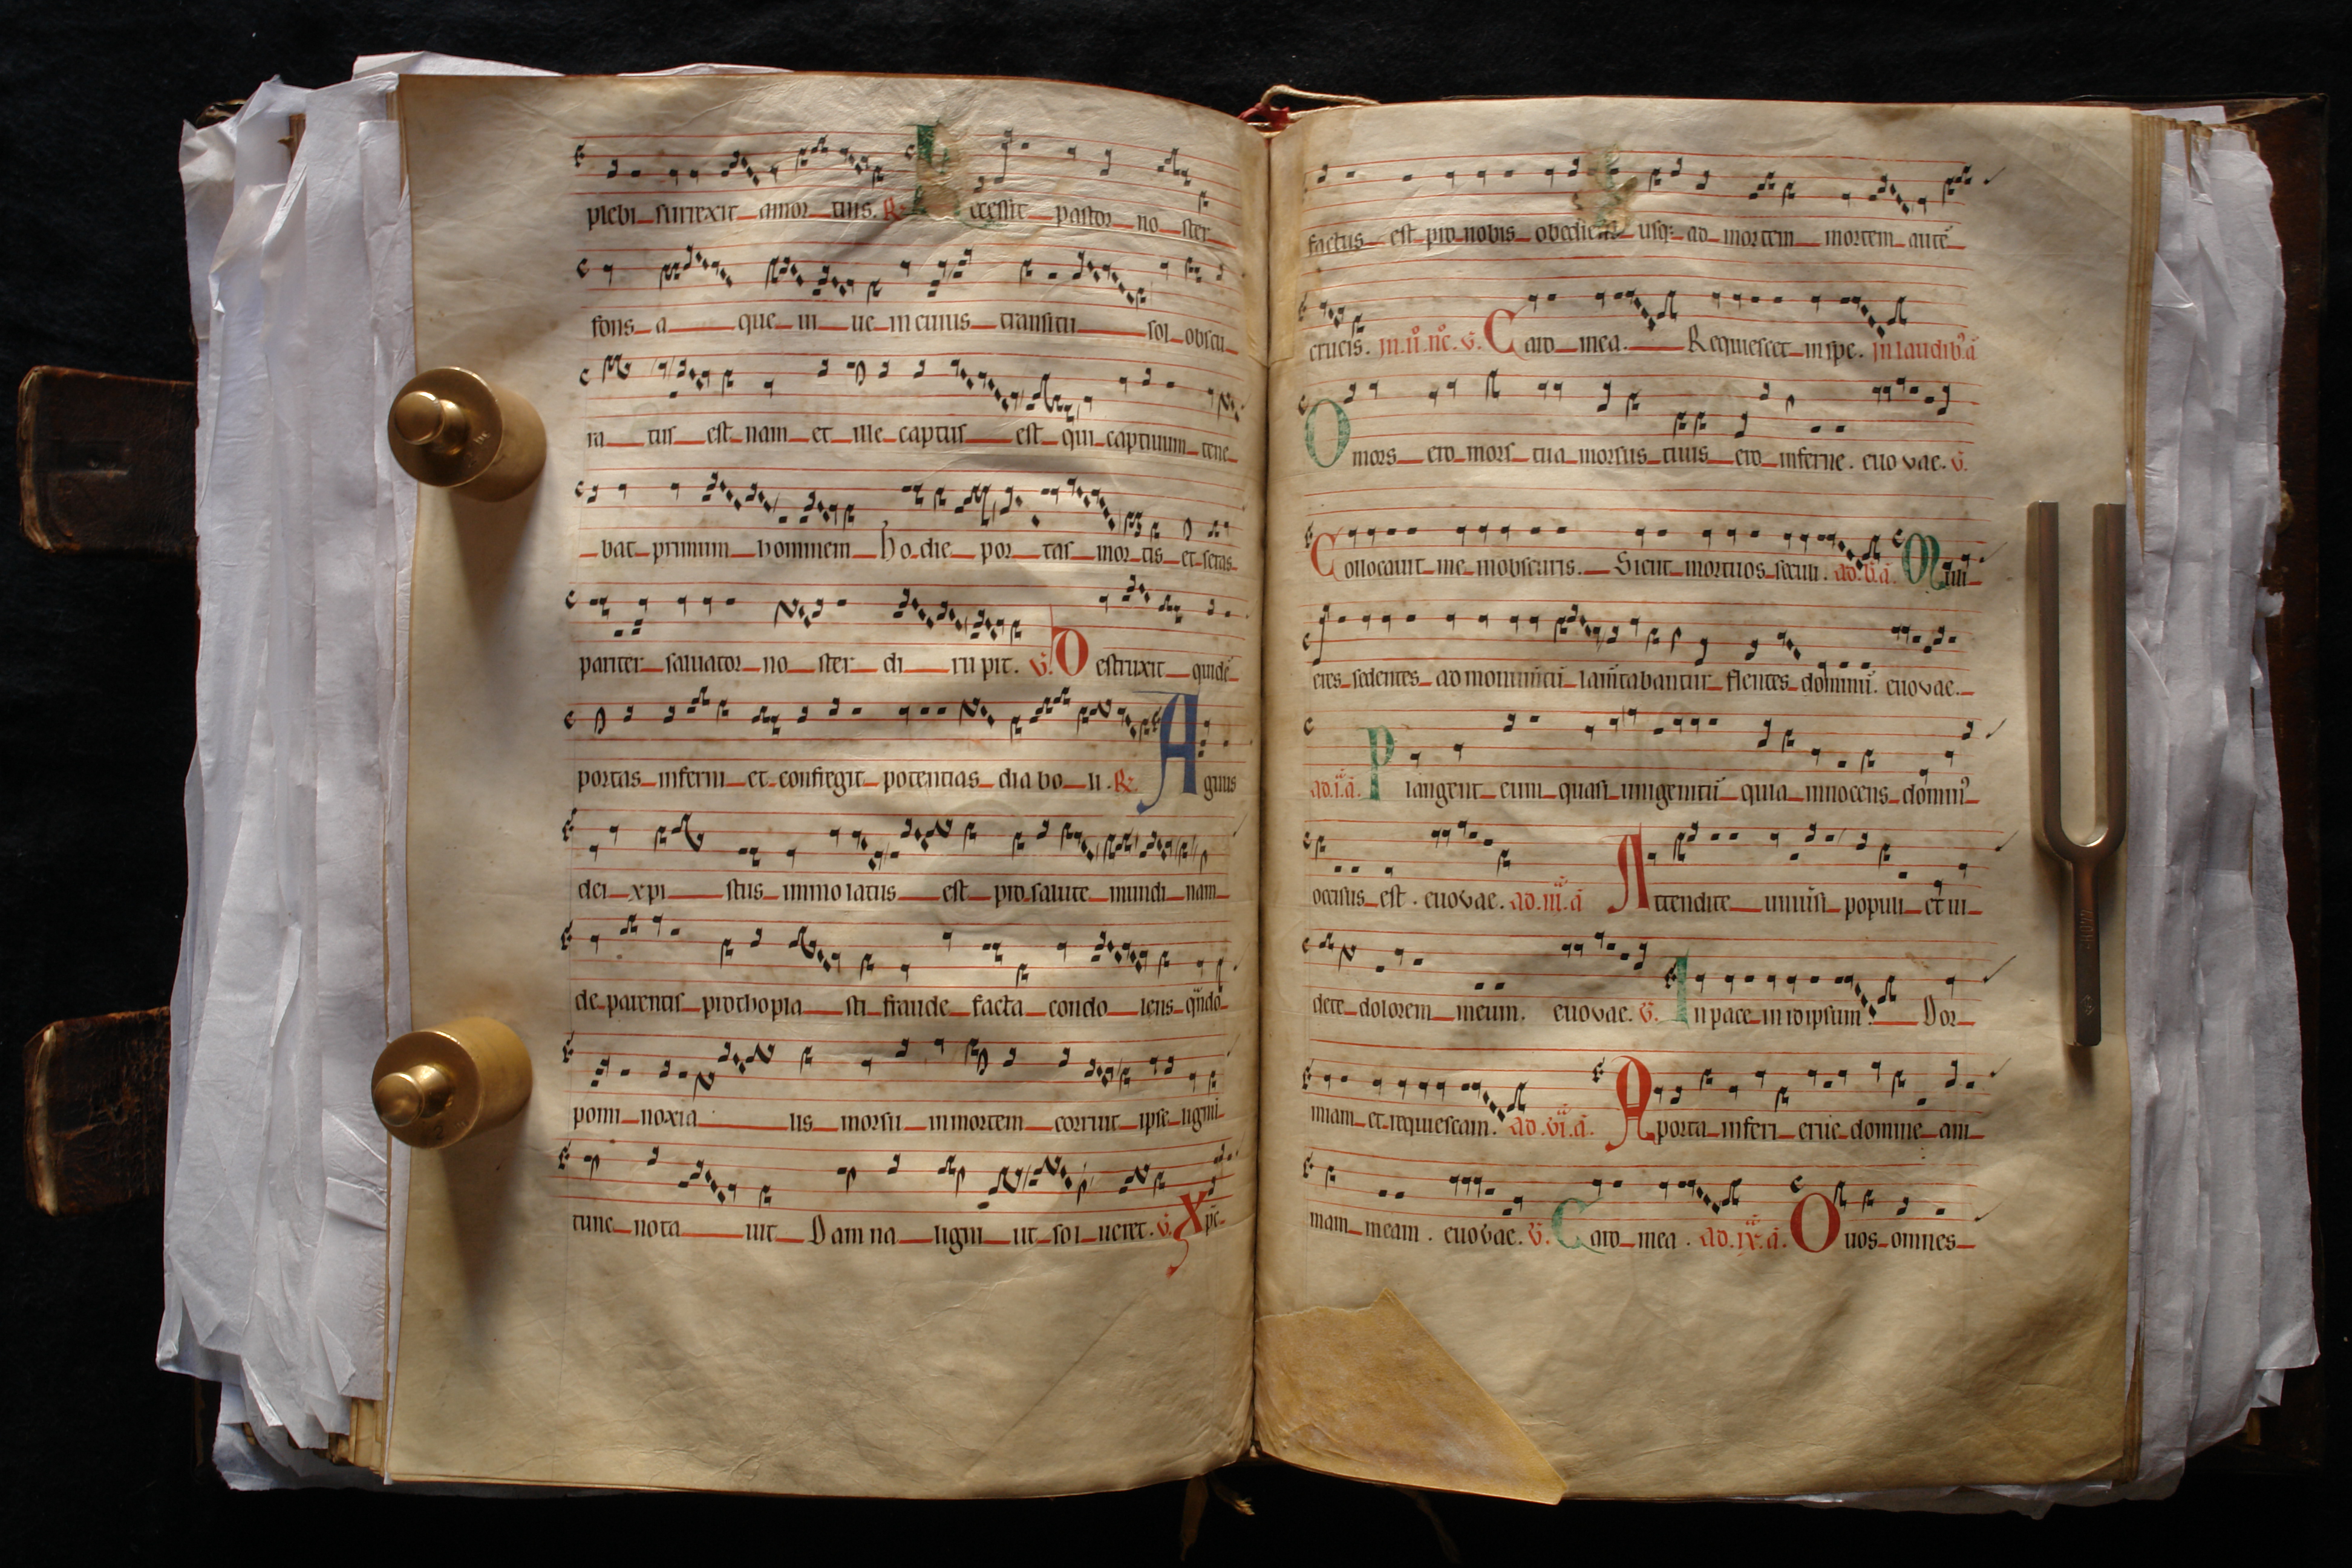 plebi surrexit amor tuus. R. Recessit pastor no ster
fons a que ui ue in cuius transitu sol obscu
ra tus est nam et ille captus est qui captiuum tene
bat primum hominem Ho die por tas mor tis et seras
pariter saluator no ster di ru pit. V. Destruxit quidē
portas inferni et confregit potentias dia bo li. R. Agnus
dei xpi stus immo latus est pro salute mundi nam
de parentis prothopla sti fraude facta condo lens qñdo
pomi noxia lis morsu in mortem corruit ipse lignū
tunc nota uit Dam na ligni ut sol ueret. V. Xpc
factus est pro nobis obediens usq; ad mortem mortem autē
crucis. Caro mea. Requiescet in spe. in laudib9 ā
O mors ero mors tua morsus tuus ero inferne. euovae. V.
Collocauit me in obscuris. Sicut mortuos seculi. Muli
eres sedentes ad monumētū lamētabantur flentes dominū. euovae.
ad.i.ā. Plangent eum quasi unigenitū quia innocens domin9
occisus est. euovae. ad.iii.ā Attendite uniuersi populi et ui
dete dolorem meum. euovae. V. In pace in idipsum. Dor
miam et requiescam. ad.vi.ā. A porta inferi erue domine ani
mam meam. euovae. V. Caro mea. ad.ix.ā. O uos omnes